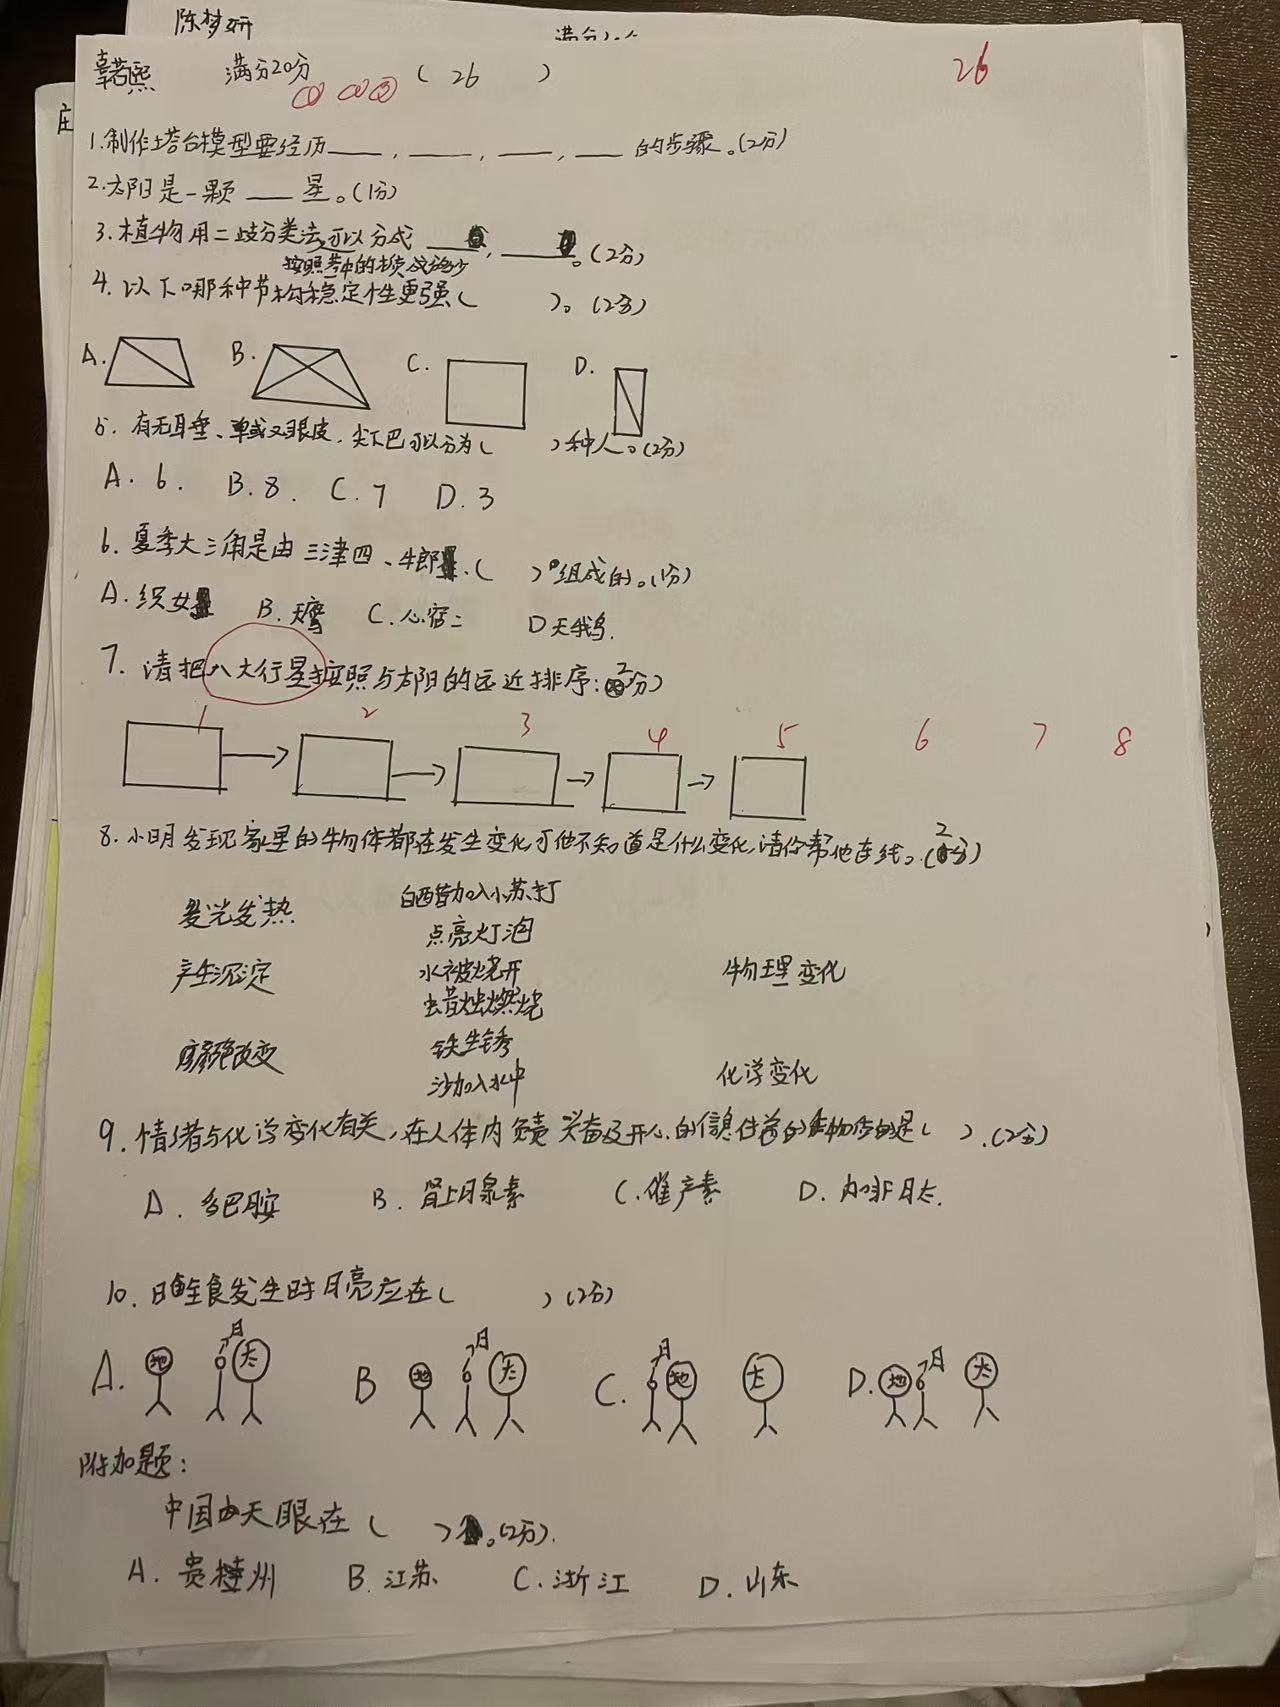 陈梦妍 满分
辜若熙 满分20分 ( 26 ) 26
庄
1.制作塔台模型要经历____,____,____,____的步骤。(2分)
2.太阳是一颗____星。(1分)
3.植物用二歧分类法可以分成____,____。(2分)
按照茎中的
4.以下哪种节构稳定性更强( )。(2分)
A. B. C. D.
5.有无耳垂、单或双眼皮、尖下巴可以分为( )种人。(2分)
A.6. B.8. C.7 D.3
6.夏季大三角是由三津四、牛郎、( )组成的。(1分)
A.织女 B.天鹰 C.心宿二 D天鹅.
7.请把八大行星按照与太阳的远近排序:(2分)
1 2 3 4 5 6 7 8
8.小明发现家里的物体都在发生变化,可他不知道是什么变化,请你帮他连线。(2分)
白醋加入小苏打
发光发热
点亮灯泡
产生沉淀 水被烧开 物理变化
蜡烛燃烧
颜色改变 铁生锈
沙加入水中 化学变化
9.情绪与化学变化有关,在人体内负责兴奋及开心的信息传递的物质的是( ).(2分)
A.多巴胺 B.肾上腺素 C.催产素 D.内啡肽.
10.日全食发生时月亮应在( )(2分)
A. 地 月 太 B 地 月 太 C. 月 地 太 D. 地 月 太
附加题:
中国天眼在( )。(2分).
A.贵州 B.江苏 C.浙江 D.山东